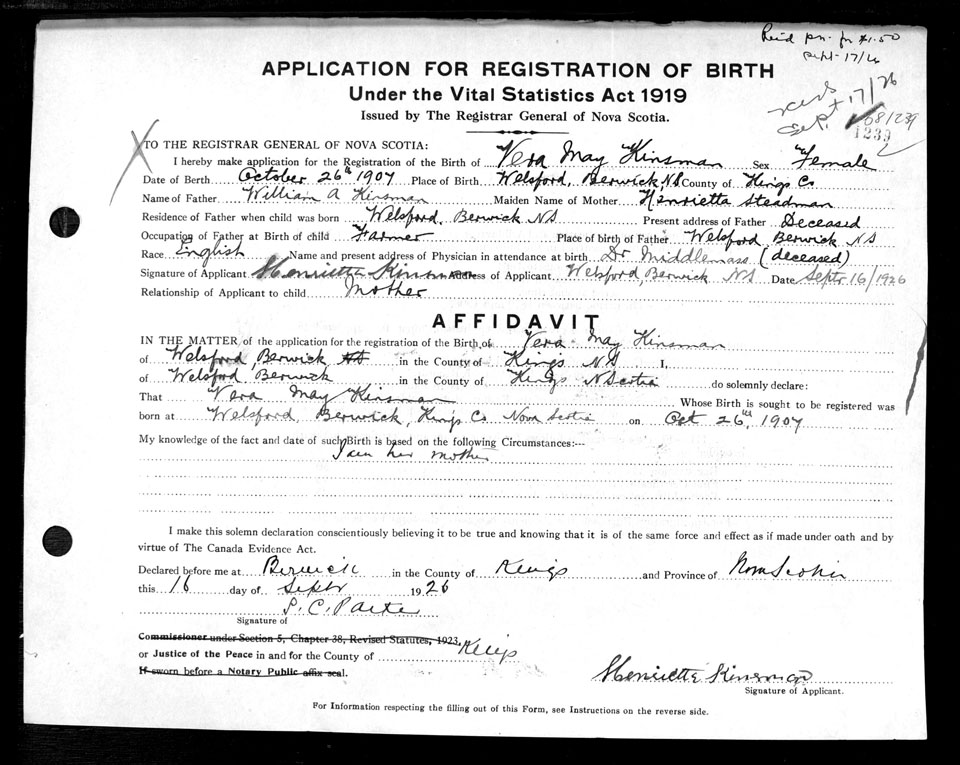 Rec'd pn. for $1.50
Sept 17/26
APPLICATION FOR REGISTRATION OF BIRTH
Under the Vital Statistics Act 1919
Issued by The Registrar General of Nova Scotia.
Sept 17/26
68/239
1239
TO THE REGISTRAR GENERAL OF NOVA SCOTIA:
I hereby make application for the Registration of the Birth of Vera May Kinsman Sex Female
Date of Berth October 26th 1907 Place of Birth Welsford, Berwick N.S County of Kings Co
Name of Father William A Kinsman Maiden Name of Mother Henrietta Steadman
Residence of Father when child was born Welsford, Berwick NS Present address of Father Deceased
Occupation of Father at Birth of child Farmer Place of birth of Father Welsford Berwick NS
Race English Name and present address of Physician in attendance at birth Dr Middlemass (deceased)
Signature of Applicant Henrietta Kinsman Address of Applicant Welsford, Berwick NS Date Septr 16/1926
Relationship of Applicant to child Mother
AFFIDAVIT
IN THE MATTER of the application for the registration of the Birth of Vera May Kinsman
of Welsford, Berwick NS in the County of Kings NS I,
of Welsford Berwick in the County of Kings N Scotia do solemnly declare:
That Vera May Kinsman Whose Birth is sought to be registered was
born at Welsford, Berwick, Kings Co Nova Scotia on Oct 26th, 1907
My knowledge of the fact and date of such Birth is based on the following Circumstances:--
I am her mother
I make this solemn declaration conscientiously believing it to be true and knowing that it is of the same force and effect as if made under oath and by
virtue of The Canada Evidence Act.
Declared before me at Berwick in the County of Kings and Province of Nova Scotia
this 16 day of Septr 1926
S. C. Parker
Signature of
Commissioner under Section 5, Chapter 38, Revised Statutes, 1923,
or Justice of the Peace in and for the County of Kings
If sworn before a Notary Public affix seal.
Henrietta Kinsman
Signature of Applicant.
For Information respecting the filling out of this Form, see Instructions on the reverse side.